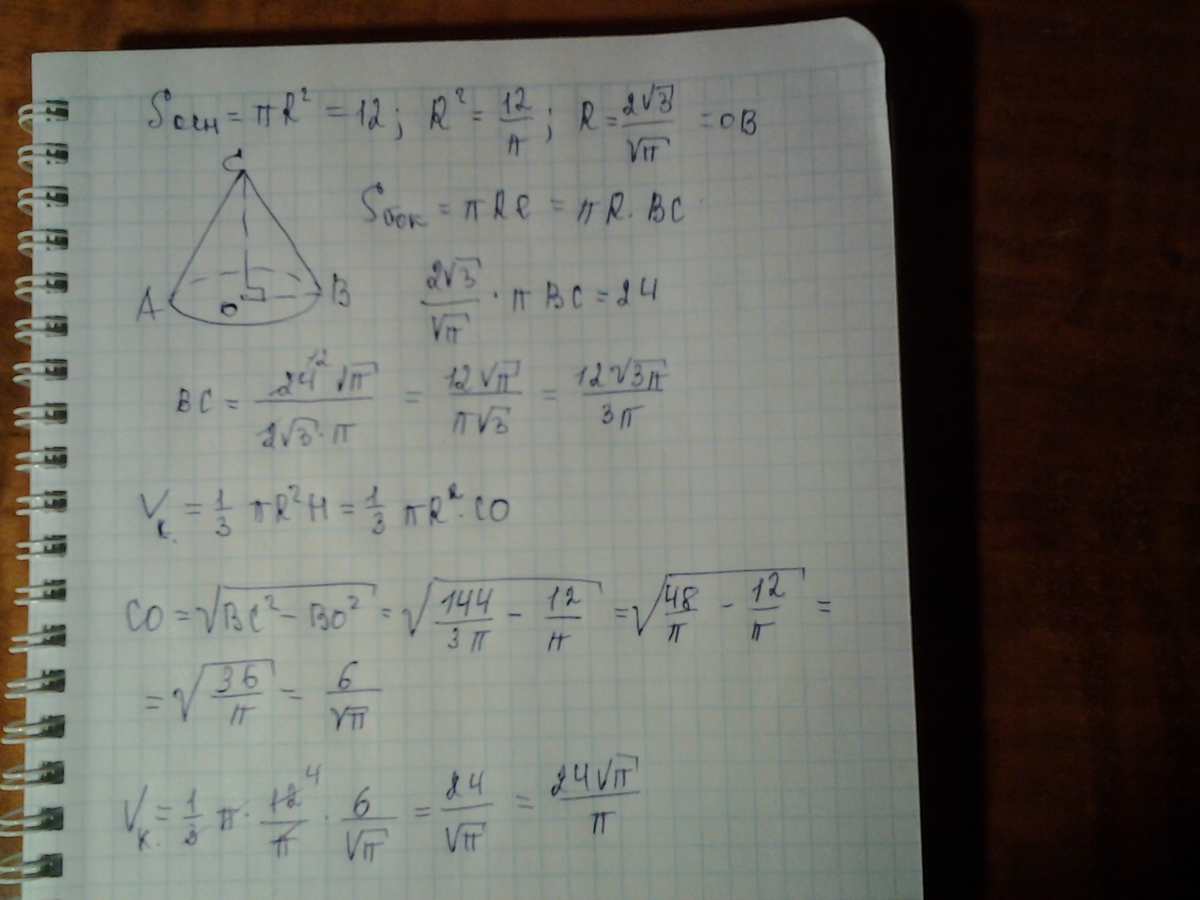 Sосн = πR² = 12; R² = 12/π; R = 2√3/√π = OB
C
A O B
Sбок = πRℓ = πR·BC
2√3/√π · π BC = 24
BC = 24¹²√π/2√3·π = 12√π/π√3 = 12√3π/3π
Vк. = 1/3 πR²H = 1/3 πR²·CO
CO = √(BC² - BO²) = √(144/3π - 12/π) = √(48/π - 12/π) =
= √(36/π) = 6/√π
Vк. = 1/3 π · 12⁴/π · 6/√π = 24/√π = 24√π/π